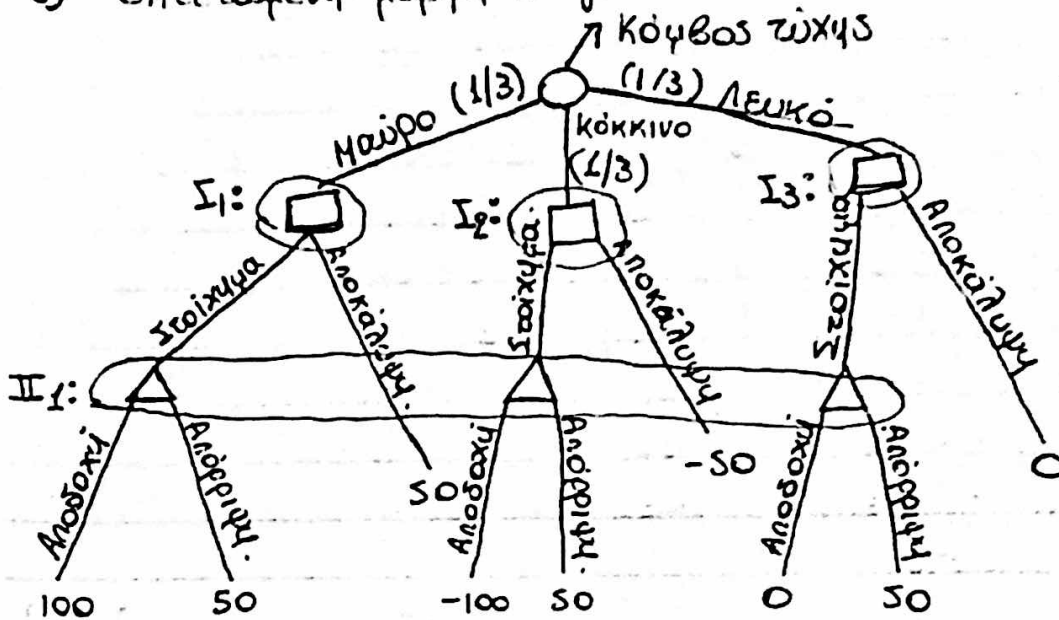 Κόμβος τύχης
Μαύρο (1/3)
(1/3) Λευκό
Κόκκινο
(1/3)
I1:
I2:
I3:
Στοίχημα
Αποκάλυψη.
Στοίχημα
Αποκάλυψη
Στοίχημα
Αποκάλυψη
II1:
Αποδοχή
Απόρριψη.
50
Αποδοχή
Απόρριψη.
-50
Αποδοχή
Απόρριψη
0
100
50
-100
50
0
50